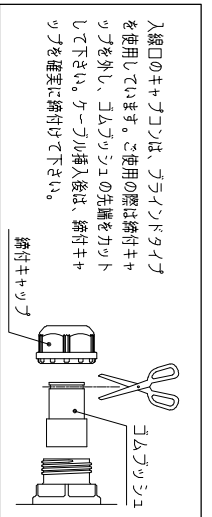 入線口のキャプコンは、ブラインドタイプ
を使用しています。ご使用の際は締付キャ
ップを外し、ゴムブッシュの先端をカット
して下さい。ケーブル挿入後は、締付キャ
ップを確実に締付けて下さい。
締付キャップ
ゴムブッシュ